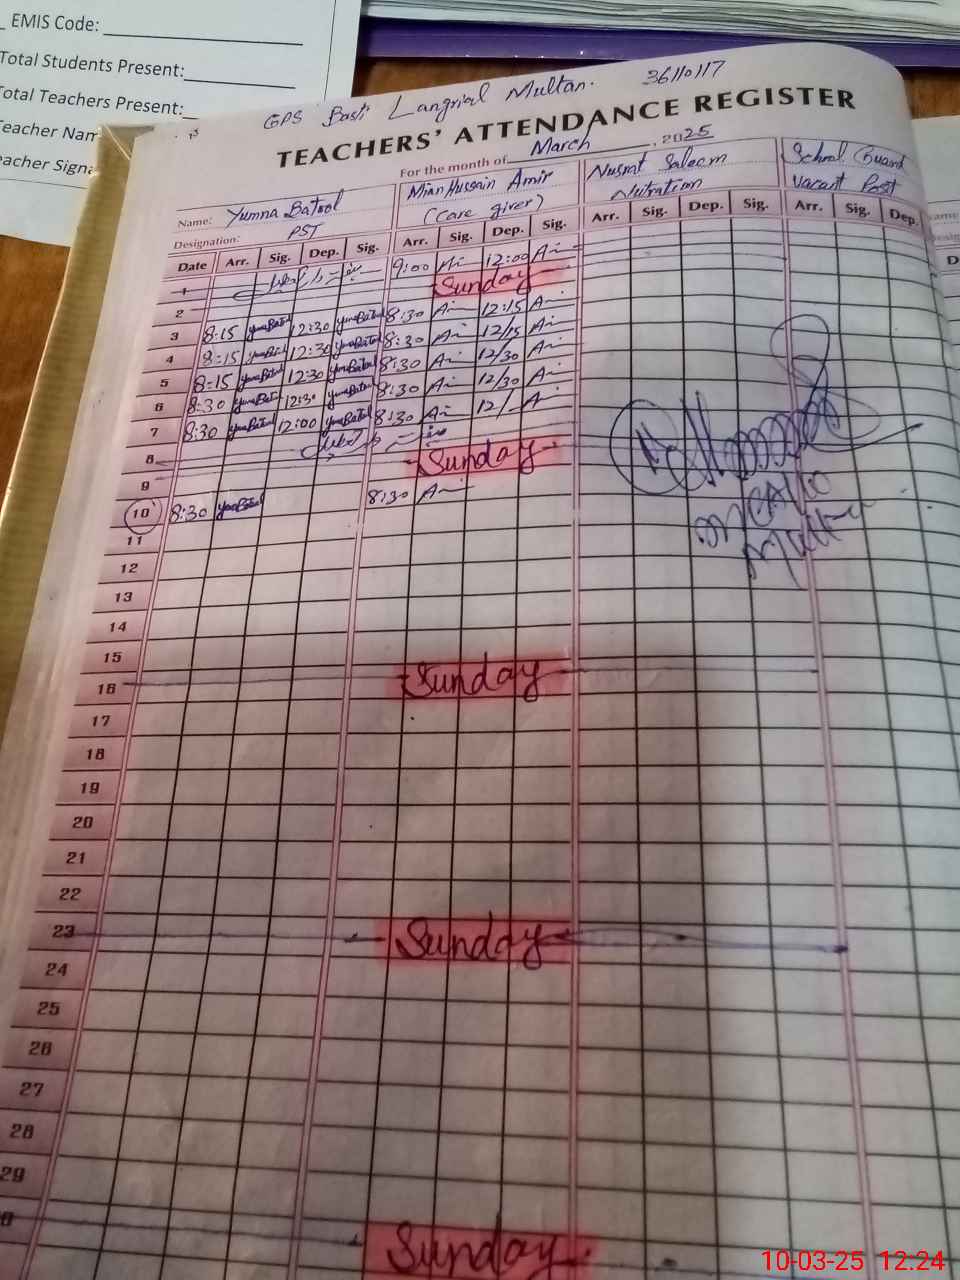 EMIS Code:
Total Students Present:
Total Teachers Present:
eacher Nam
eacher Signa
GPS Basti Langrial Multan. 36110117
TEACHERS' ATTENDANCE REGISTER
For the month of March, 2025
Name: Yumna Batool Mian Hussain Amir Nusrat Saleem School Guard
Designation: PST (Care giver) Nutration Vacant Post
Date Arr. Sig. Dep. Sig. Arr. Sig. Dep. Sig. Arr. Sig. Dep. Sig. Arr. Sig. Dep.
1 9:00 12:00
2 Sunday
3 8:15 YumnaBatool 12:30 YumnaBatool 8:30 12:15
4 8:15 YumnaBatool 12:30 YumnaBatool 8:30 12/15
5 8:15 YumnaBatool 12:30 YumnaBatool 8:30 12/30
6 8:30 YumnaBatool 12:30 YumnaBatool 8:30 12/30
7 8:30 YumnaBatool 12:00 YumnaBatool 8:30 12/-
8
9 Sunday
10 8:30 YumnaBatool 8:30
11
12
13
14
15
16 Sunday
17
18
19
20
21
22
23 Sunday
24
25
26
27
28
29
Sunday
10-03-25 12.24